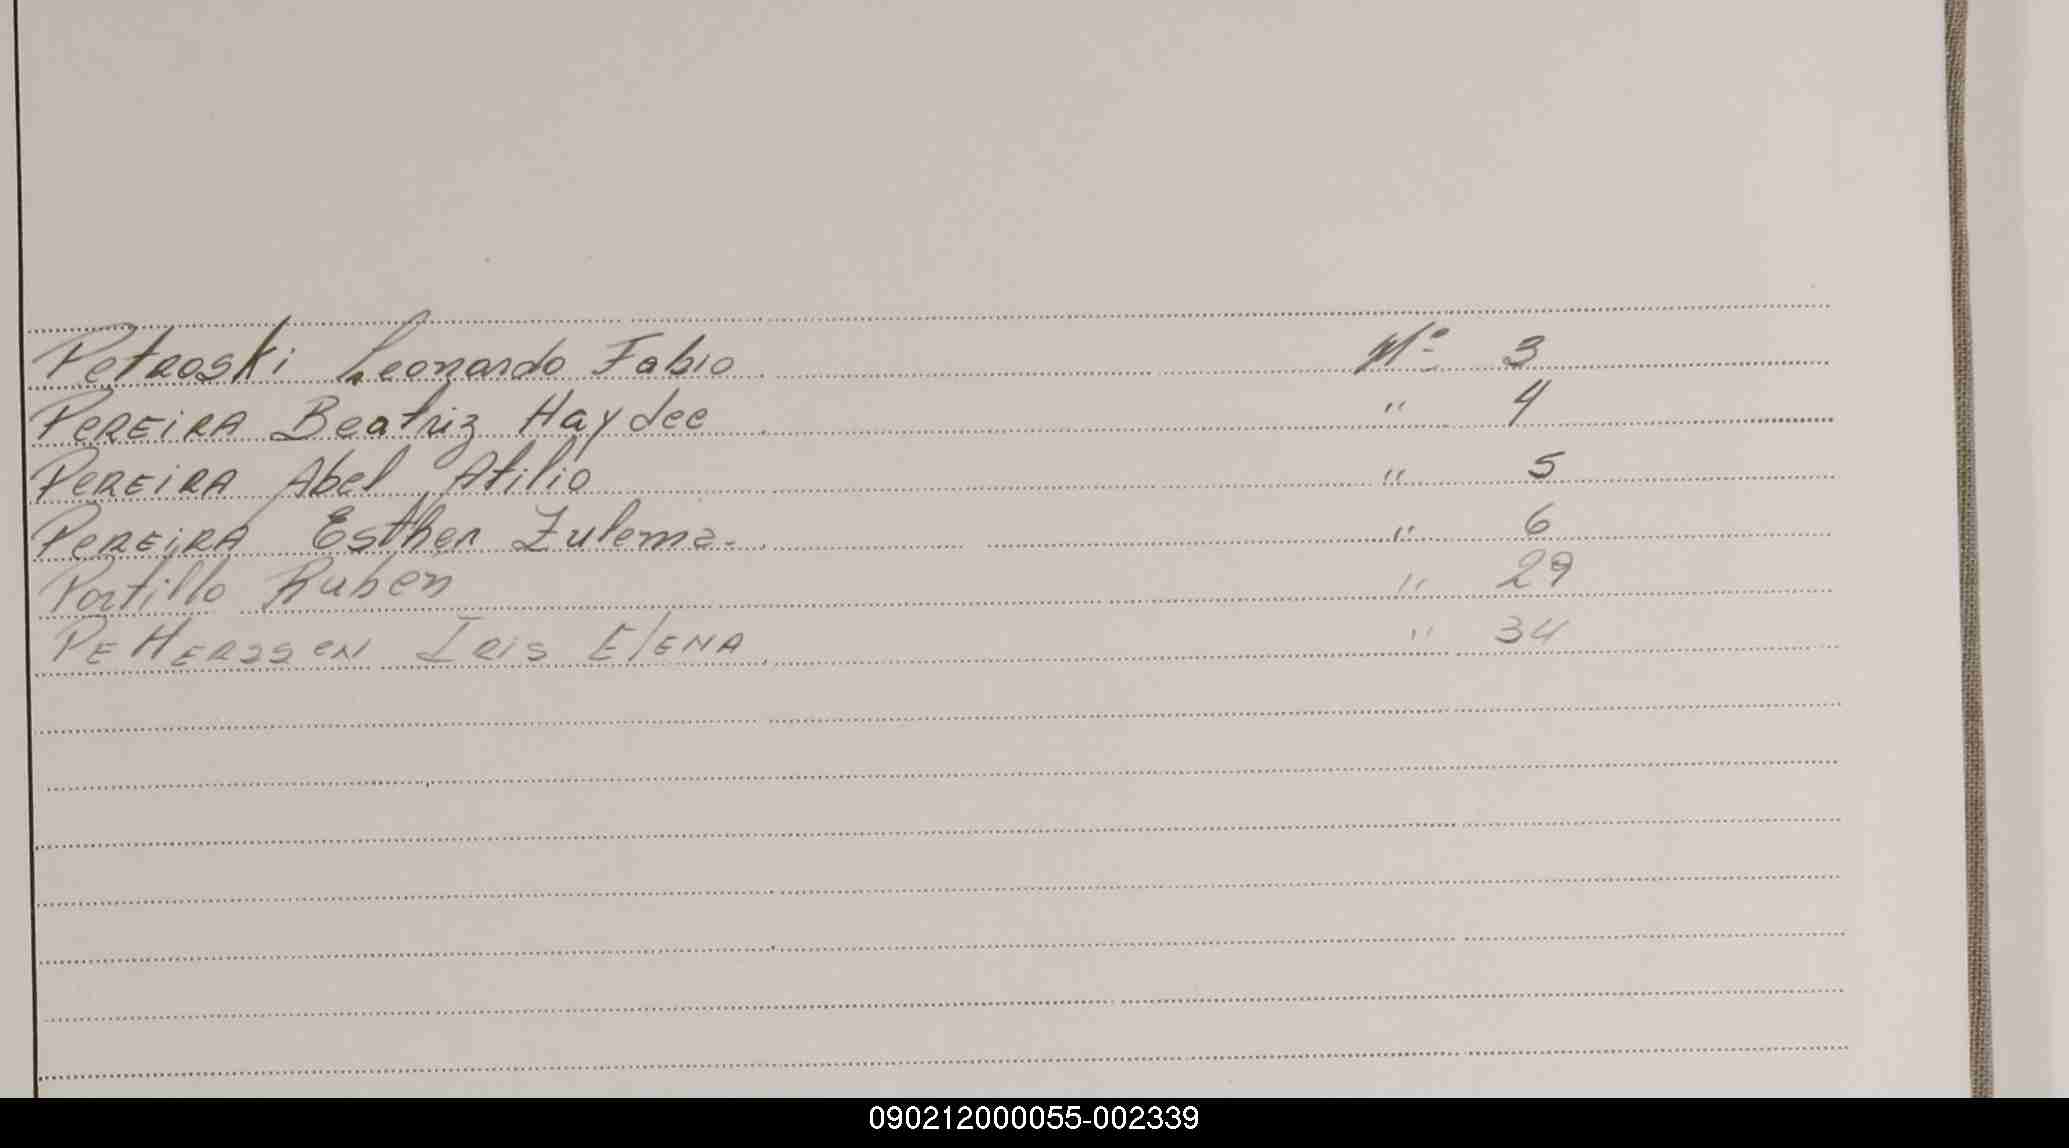 Petroski Leonardo Fabio Nº 3
PEREIRA Beatriz Haydee " 4
PEREIRA Abel Atilio " 5
PEREIRA Esther Zulema. " 6
Portillo Ruben " 29
IRIS ElENA " 34
090212000055-002339